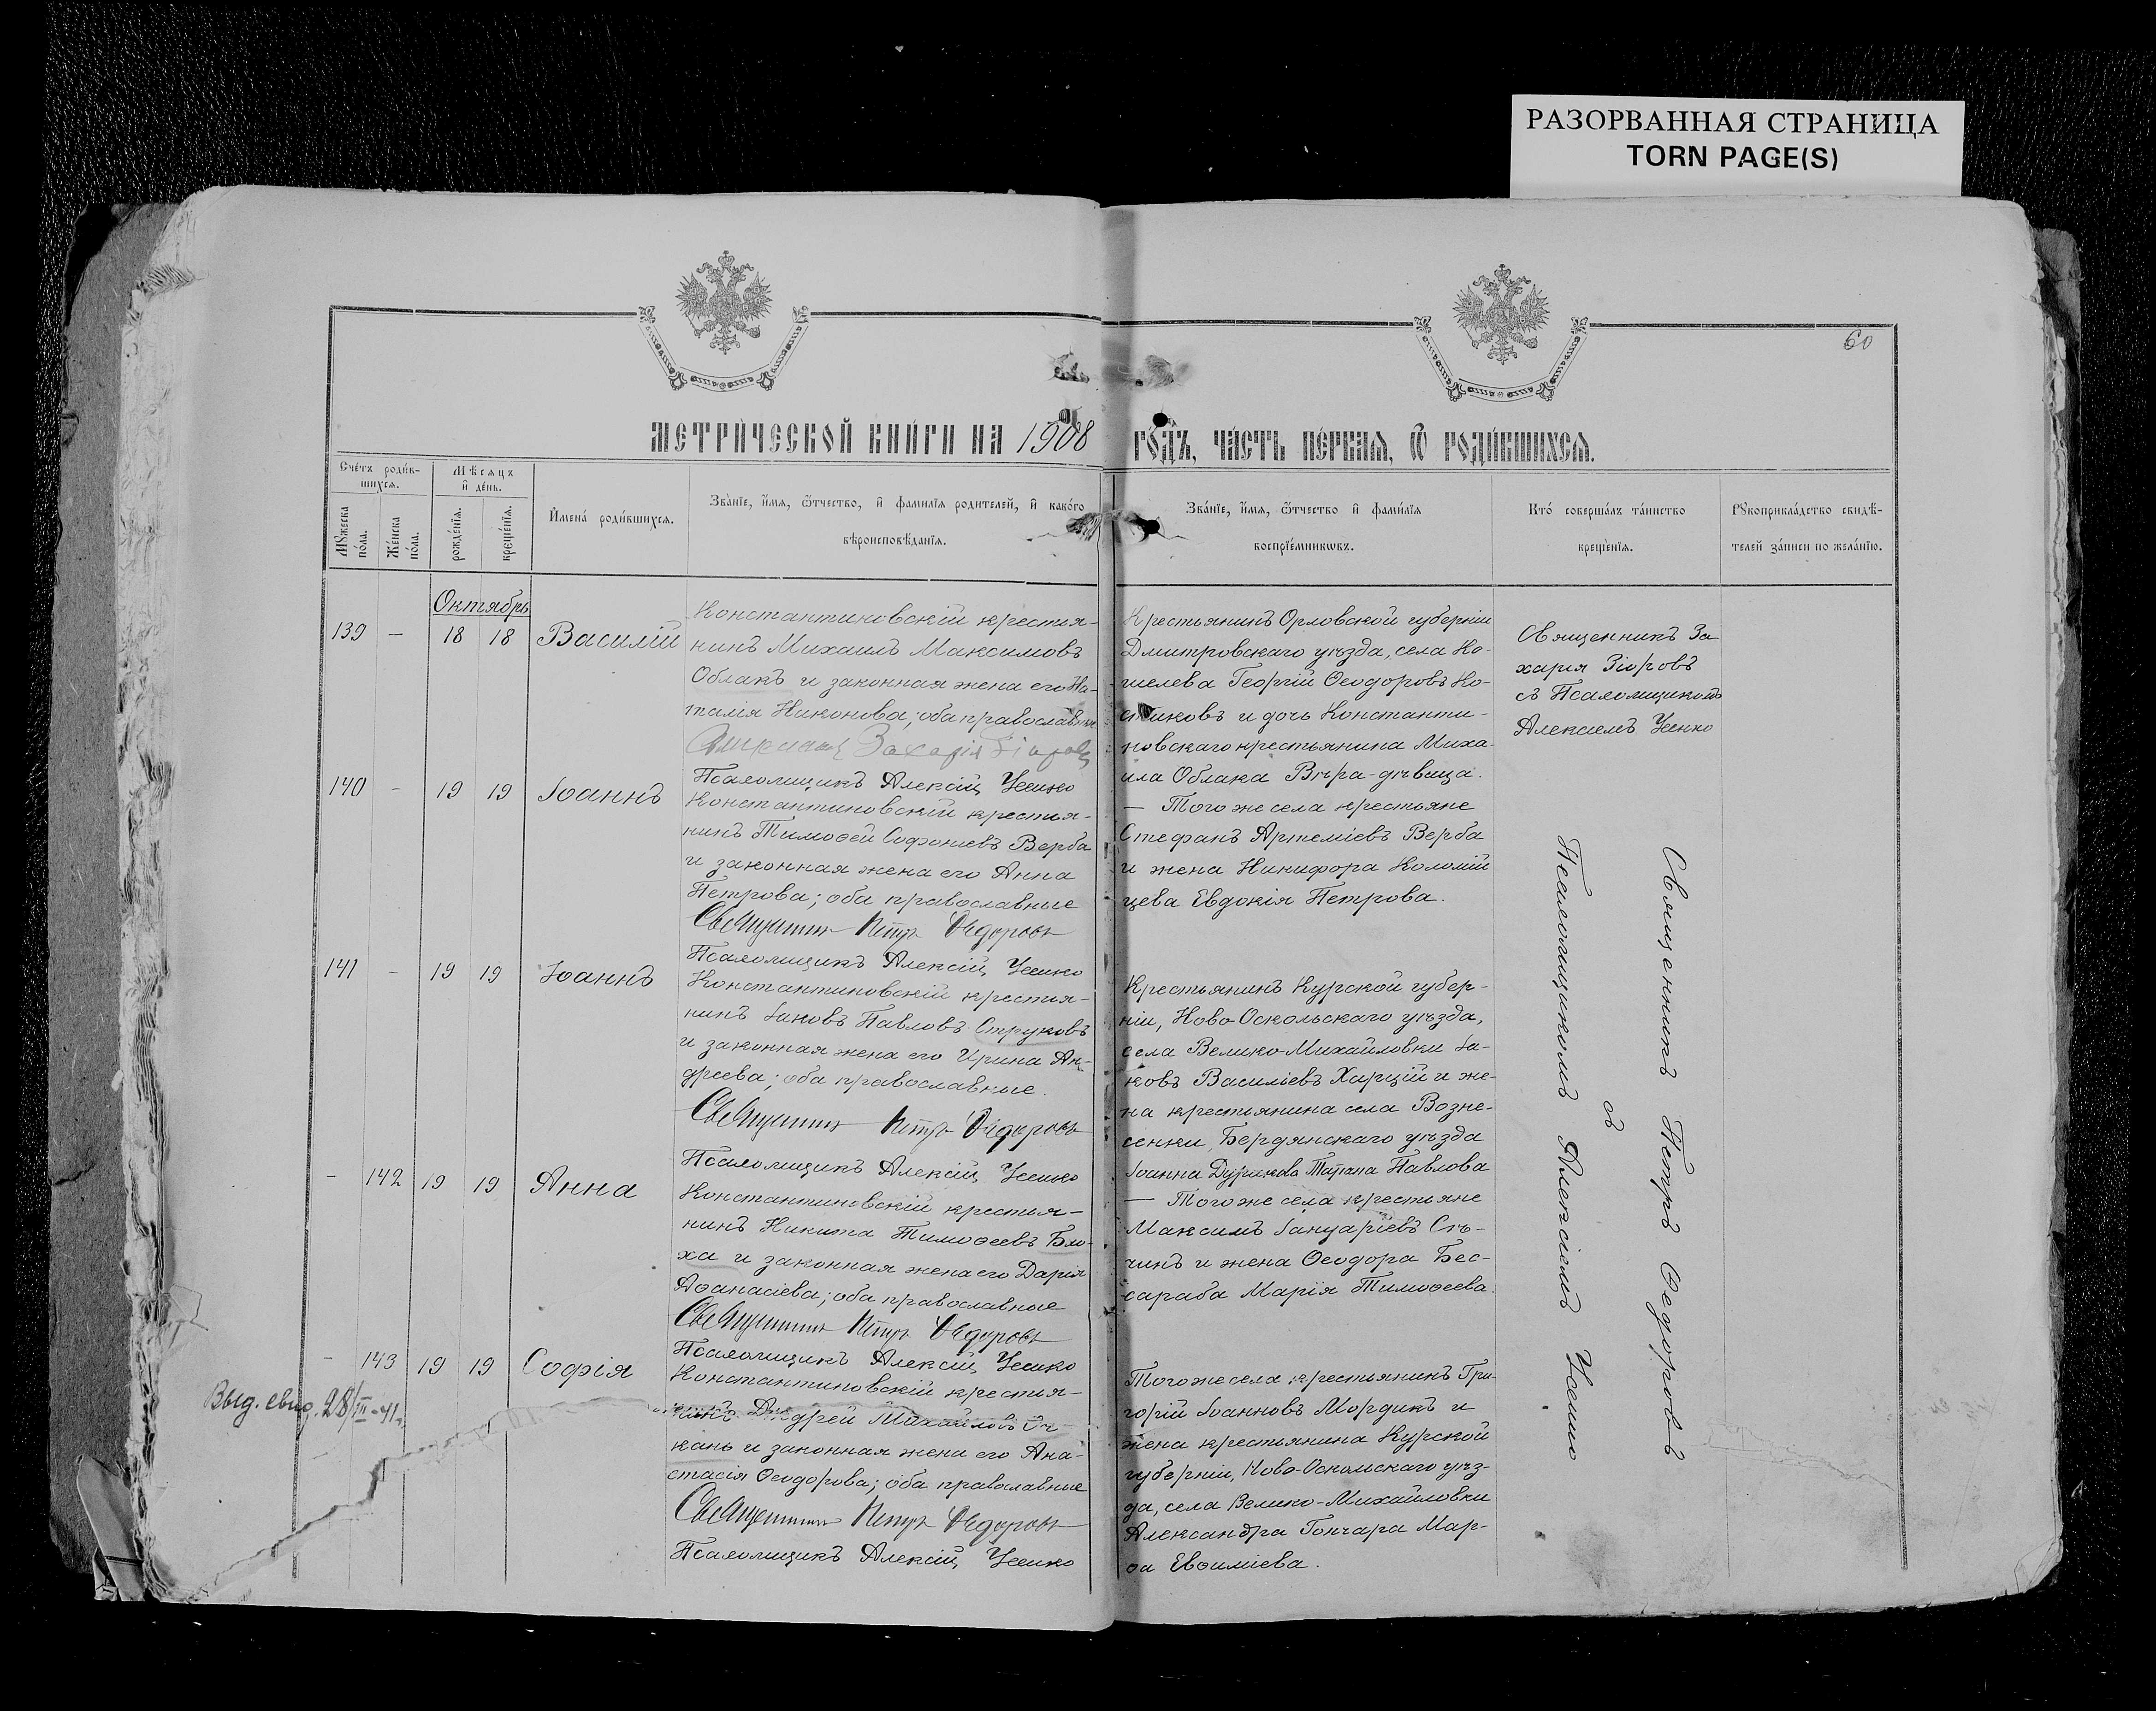 РАЗОРВАННАЯ СТРАНИЦА
TORN PAGE(S)
60
МЕТРИ́ЧЕСКОЙ КНИ́ГИ НА 1908 ГО́ДЪ, ЧА́СТЬ ПЕ́РВАЯ, Ѿ РОДИ́ВШИХСЯ.
Сче́тъ роди́в-
шихся.
Мѣсяцъ
и де́нь.
Мꙋжеска по́ла.
Же́нска по́ла.
рожде́нїя.
креще́нїя.
Имена́ роди́вшихся.
Зва́нїе, и́мя, ѻ́тчество, и фами́лїя роди́телей, и како́го
вѣроисповѣ́данїя.
Зва́нїе, и́мя, ѻ́тчество и фами́лїя
воспрїе́мниковъ.
Кто́ соверша́лъ та́инство
креще́нїя.
Рꙋкоприкла́дство свидѣ́-
телей за́писи по жела́нїю.
Октябрь
139 — 18 18 Василій
Константиновскій крестья-
нинъ Михаилъ Максимовъ
Облакъ и законная жена его На-
талія Никонова; оба православные
Захарія Зіоровъ
Псаломщикъ Алексій Усенко
Крестьянинъ Орловской губерніи
Дмитровскаго уѣзда, села Ко-
шелева Георгій Ѳеодоровъ Ко-
стиковъ и дочь Константи-
новскаго крестьянина Миха-
ила Облака Вѣра-дѣвица.
Священникъ За-
харія Зіоровъ
съ Псаломщикомъ
Алексіемъ Усенко
140 - 19 19 Іоаннъ
Константиновскій крестья-
нинъ Тимоѳей Софоніевъ Верба
и законная жена его Анна
Петрова; оба православные
Священникъ Петръ Ѳедоровъ
Псаломщикъ Алексій Усенко
— Того же села крестьяне
Стефанъ Артеміевъ Верба
и жена Никифора Коломій
цева Евдокія Петрова.
141 - 19 19 Іоаннъ
Константиновскій крестья-
нинъ Іаковъ Павловъ Струковъ
и законная жена его Ирина Ан-
дреева; оба православные.
Священникъ Петръ Ѳедоровъ
Псаломщикъ Алексій Усенко
Крестьянинъ Курской губер-
ніи, Ново Оскольскаго уѣзда,
села Велико Михайловки Іа-
ковъ Василіевъ Харцій и же-
на крестьянина села Возне-
сенки, Бердянскаго уѣзда
Іоанна Татіана Павлова
- 142 19 19 Анна
Константиновскій крестья-
нинъ Никита Тимоѳеевъ Бло-
ха и законная жена его Дарія
Аѳанасіева; оба православные
Священникъ Петръ Ѳедоровъ
Псаломщикъ Алексій Усенко
— Того же села крестьяне
Максимъ Іануаріевъ Сѣ-
чинъ и жена Ѳеодора Бес-
сараба Марія Тимоѳеева.
- 143 19 19 Софія
Выд. свид. 28/III-41
Константиновскій крестья-
нинъ Андрей Михайловъ
канъ и законная жена его Ана-
стасія Ѳеодорова; оба православные
Священникъ Петръ Ѳедоровъ
Псаломщикъ Алексій Усенко
Того же села крестьянинъ Гри-
горій Іоанновъ Мордикъ и
жена крестьянина Курской
губерніи, Ново-Оскольскаго уѣз-
да, села Велико-Михайловки
Александра Гончара Мар-
ѳа Евѳиміева.
Священникъ Петръ Ѳедоровъ
съ
Псаломщикомъ Алексіемъ Усенко